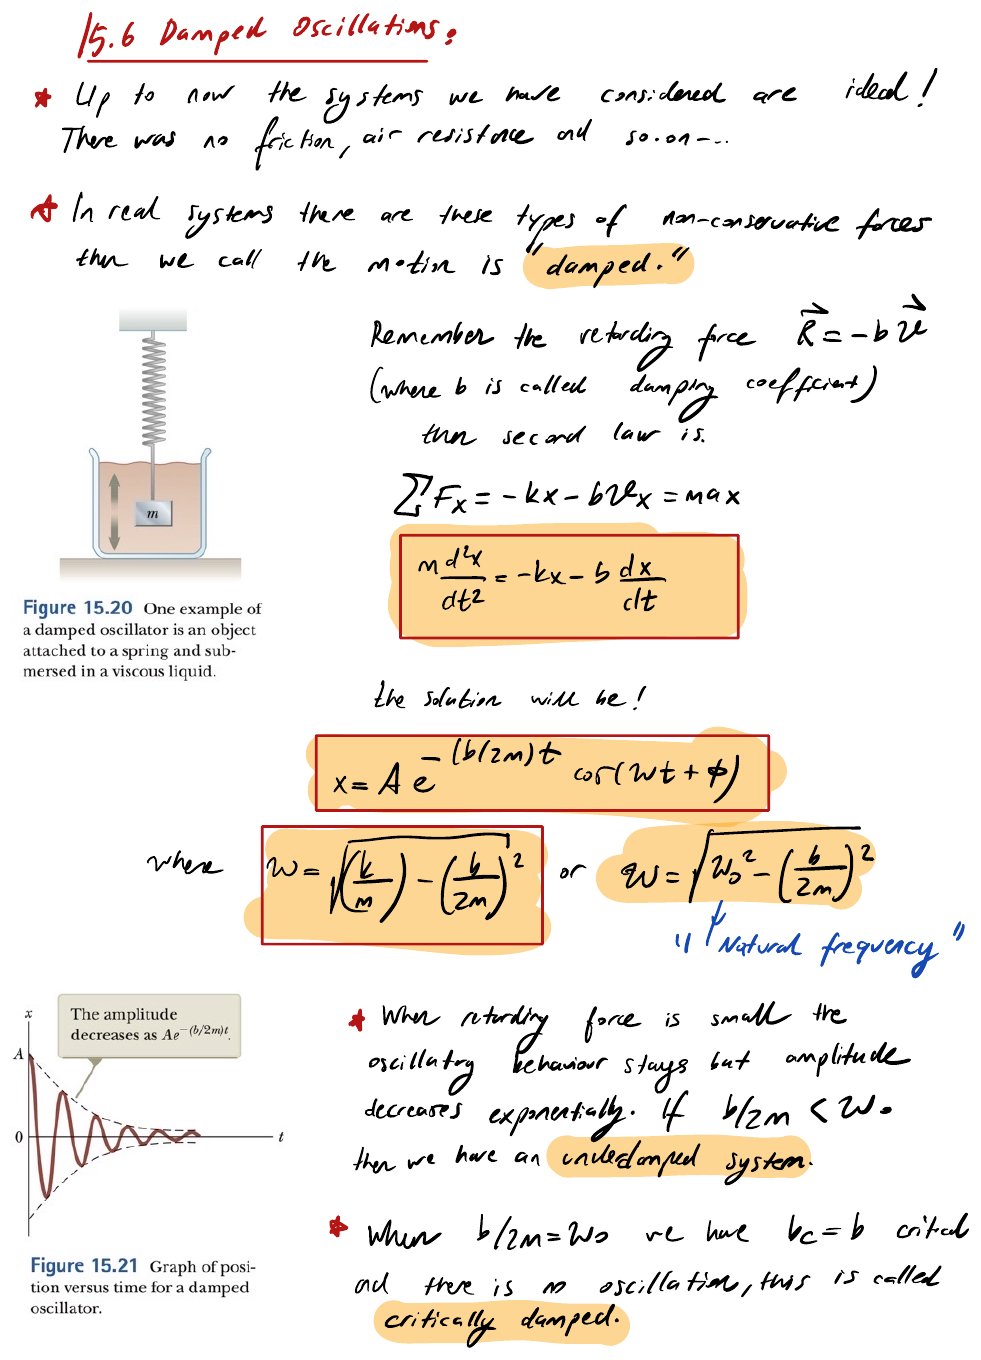 15.6 Damped Oscillations:
* Up to now the systems we have considered are ideal!
There was no friction, air resistance and so.on-...
* In real systems there are these types of non-conservative forces
then we call the motion is "damped."
Remember the retarding force R⃗ = -b v⃗
(where b is called damping coefficient)
then second law is.
∑ Fx = -kx - bvx = max
m d²x/dt² = -kx - b dx/dt
m
Figure 15.20 One example of
a damped oscillator is an object
attached to a spring and sub-
mersed in a viscous liquid.
the solution will be!
x = A e^-(b/2m)t cos(wt + ϕ)
where w = √((k/m) - (b/2m)²) or w = √(w₀² - (b/2m)²)
"Natural frequency"
x
The amplitude
decreases as Ae^-(b/2m)t.
A
0
t
Figure 15.21 Graph of posi-
tion versus time for a damped
oscillator.
* When retarding force is small the
oscillatory behaviour stays but amplitude
decreases exponentially. If b/2m < w₀
then we have an underdamped system.
* When b/2m = w₀ we have bc = b critical
and there is no oscillation, this is called
critically damped.